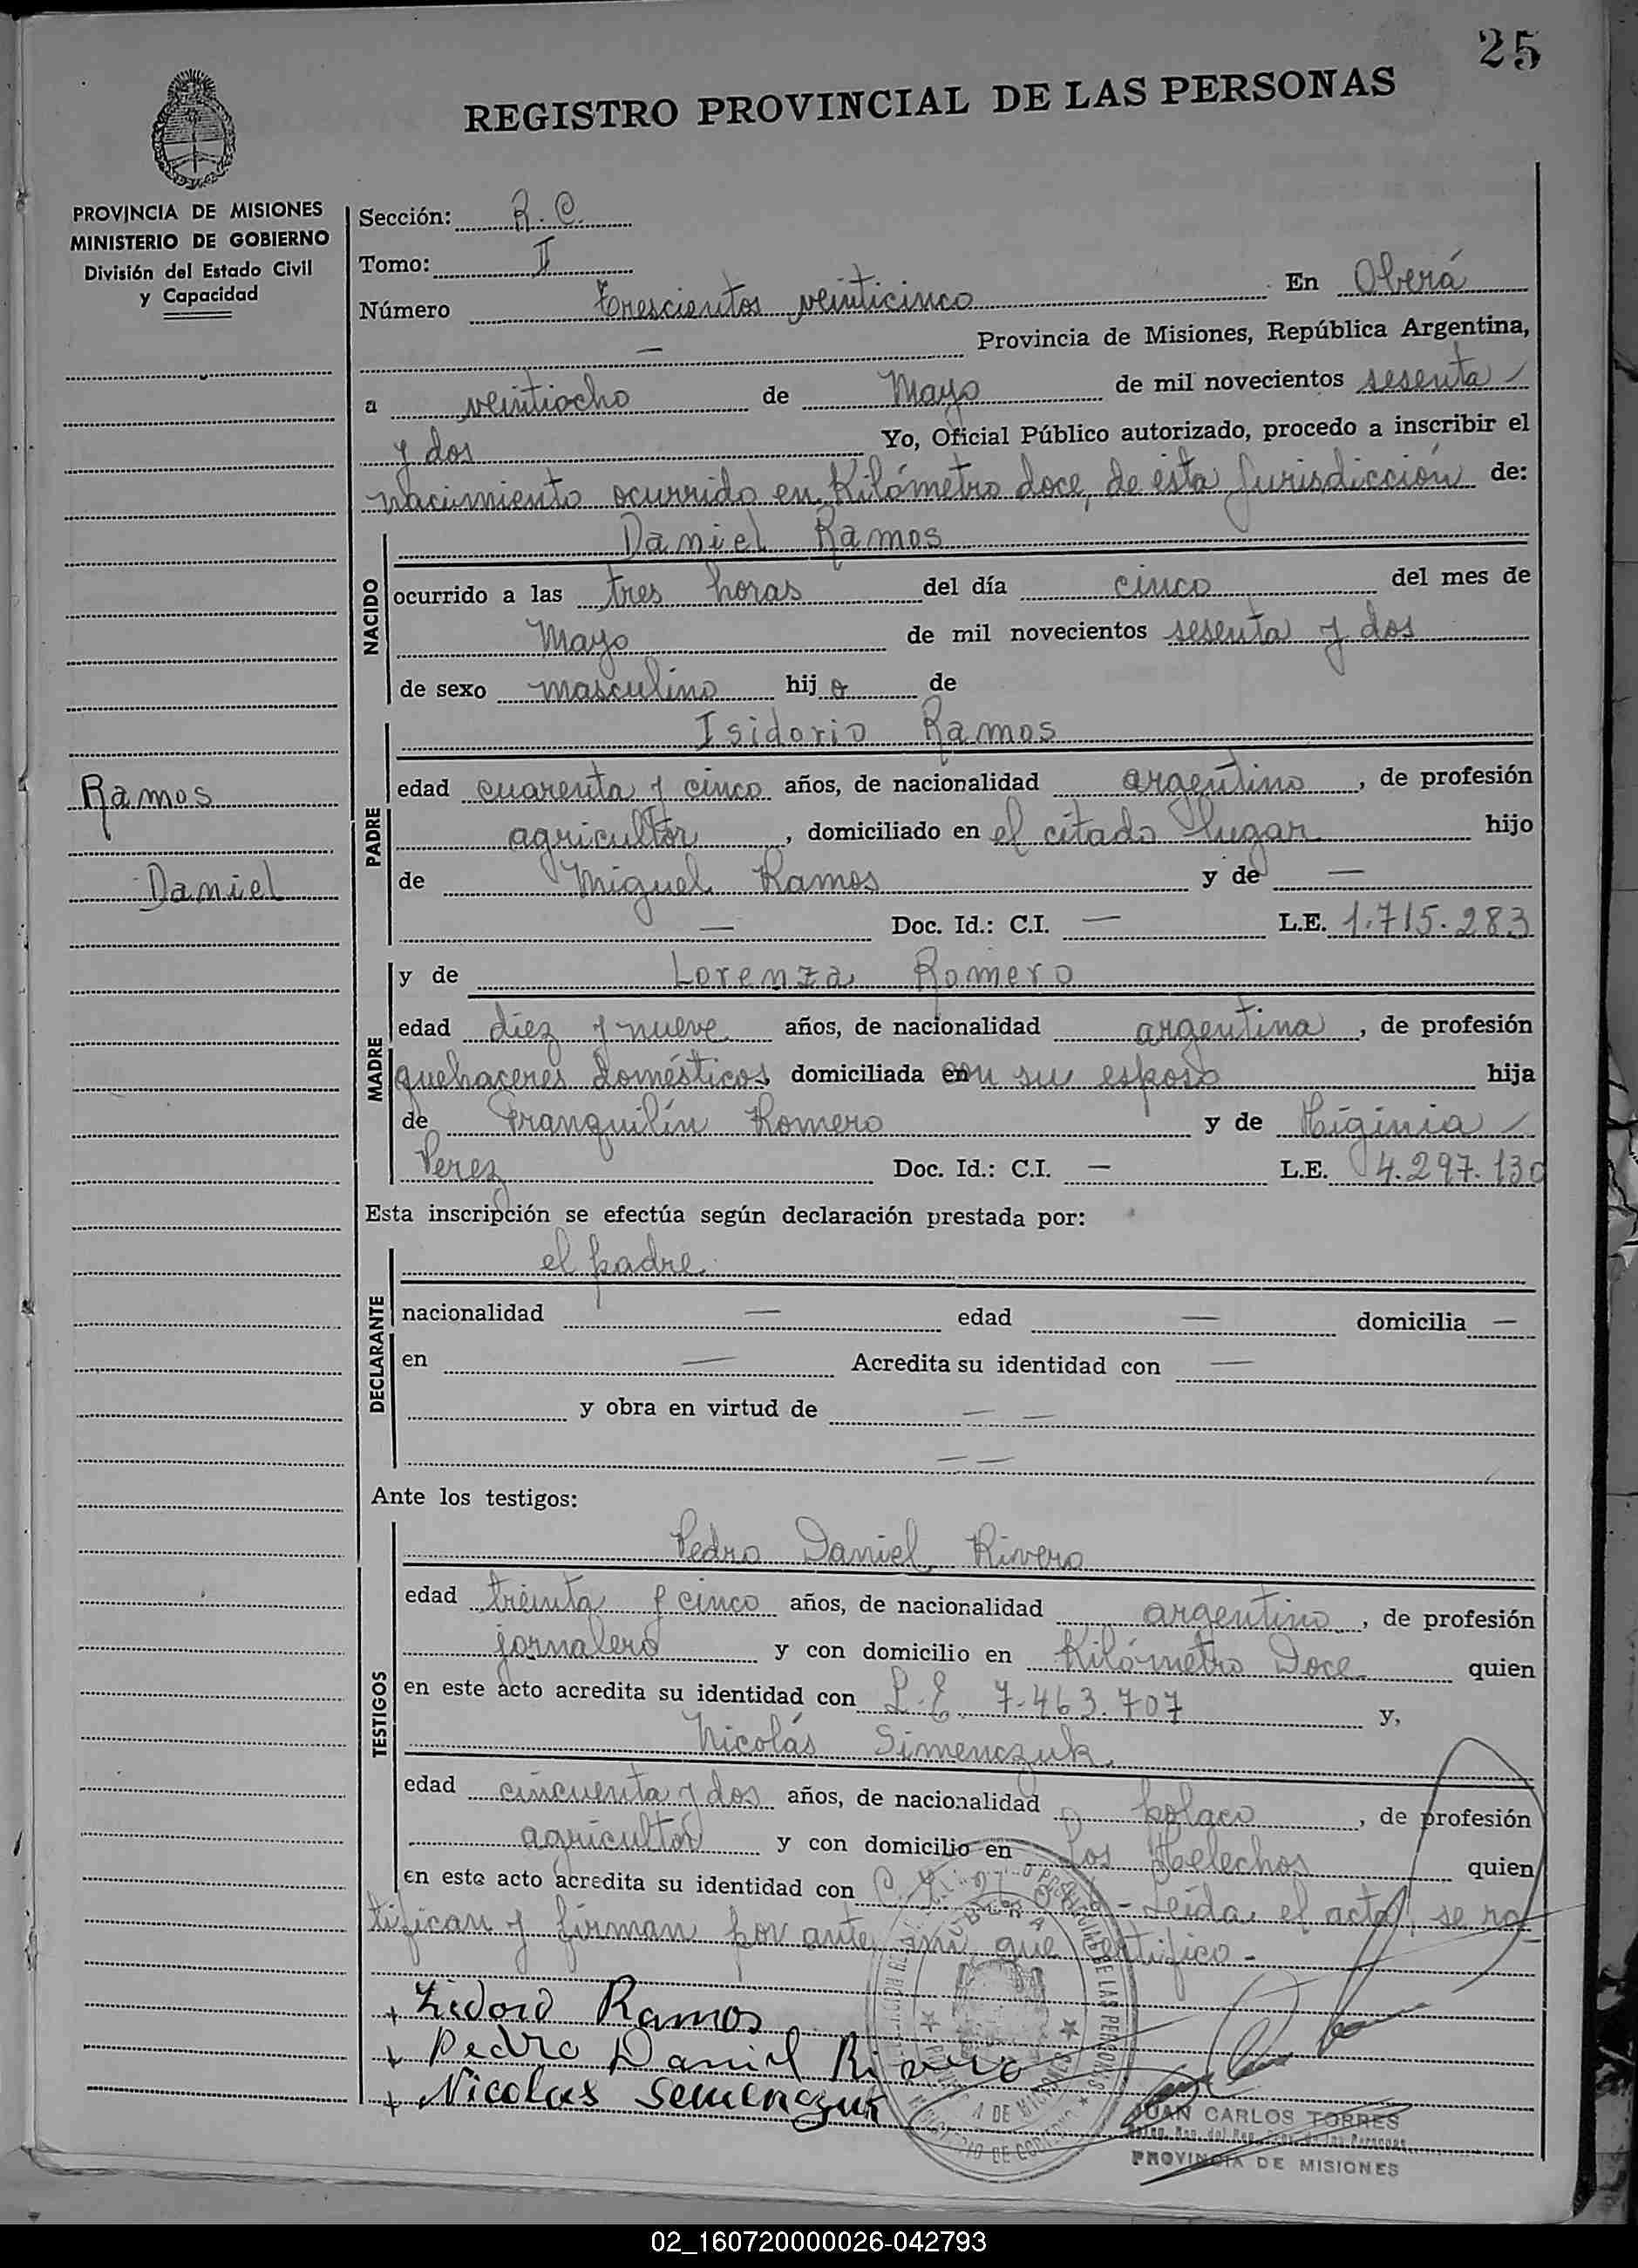 25
REGISTRO PROVINCIAL DE LAS PERSONAS
PROVINCIA DE MISIONES
MINISTERIO DE GOBIERNO
División del Estado Civil
y Capacidad
Sección: R. C.
Tomo: II
Número trescientos veinticinco En Oberá
— Provincia de Misiones, República Argentina,
a veintiocho de Mayo de mil novecientos sesenta
y dos Yo, Oficial Público autorizado, procedo a inscribir el
nacimiento ocurrido en Kilómetro doce, de esta Jurisdicción de:
NACIDO
Daniel Ramos
ocurrido a las tres horas del día cinco del mes de
Mayo de mil novecientos sesenta y dos
de sexo masculino hijo de
PADRE
Isidorio Ramos
Ramos
Daniel
edad cuarenta y cinco años, de nacionalidad argentino, de profesión
agricultor, domiciliado en el citado lugar hijo
de Miguel Ramos y de —
— Doc. Id.: C.I. — L.E. 1.715.283
MADRE
y de Lorenza Romero
edad diez y nueve años, de nacionalidad argentina, de profesión
quehaceres domésticos, domiciliada con su esposo hija
de Tranquilín Romero y de Higinia
Perez Doc. Id.: C.I. — L.E. 4.297.130
Esta inscripción se efectúa según declaración prestada por:
DECLARANTE
el padre
nacionalidad — edad — domicilia —
en — Acredita su identidad con —
y obra en virtud de — —
— —
Ante los testigos:
TESTIGOS
Pedro Daniel Rivero
edad treinta y cinco años, de nacionalidad argentino, de profesión
jornalero y con domicilio en Kilómetro Doce quien
en este acto acredita su identidad con L.E 7.463.707 y,
Nicolás Simenczuk
edad cincuenta y dos años, de nacionalidad polaco, de profesión
agricultor y con domicilio en Los Helechos quien
en este acto acredita su identidad con C. - Leída el acta, se ra-
tifican y firman por ante mi, que certifico -
+ Isidoro Ramos
+ Pedro Daniel Rivero
+ Nicolas Semenczuk
OBERA
JUAN CARLOS TORRES
PROVINCIA DE MISIONES
02_160720000026-042793